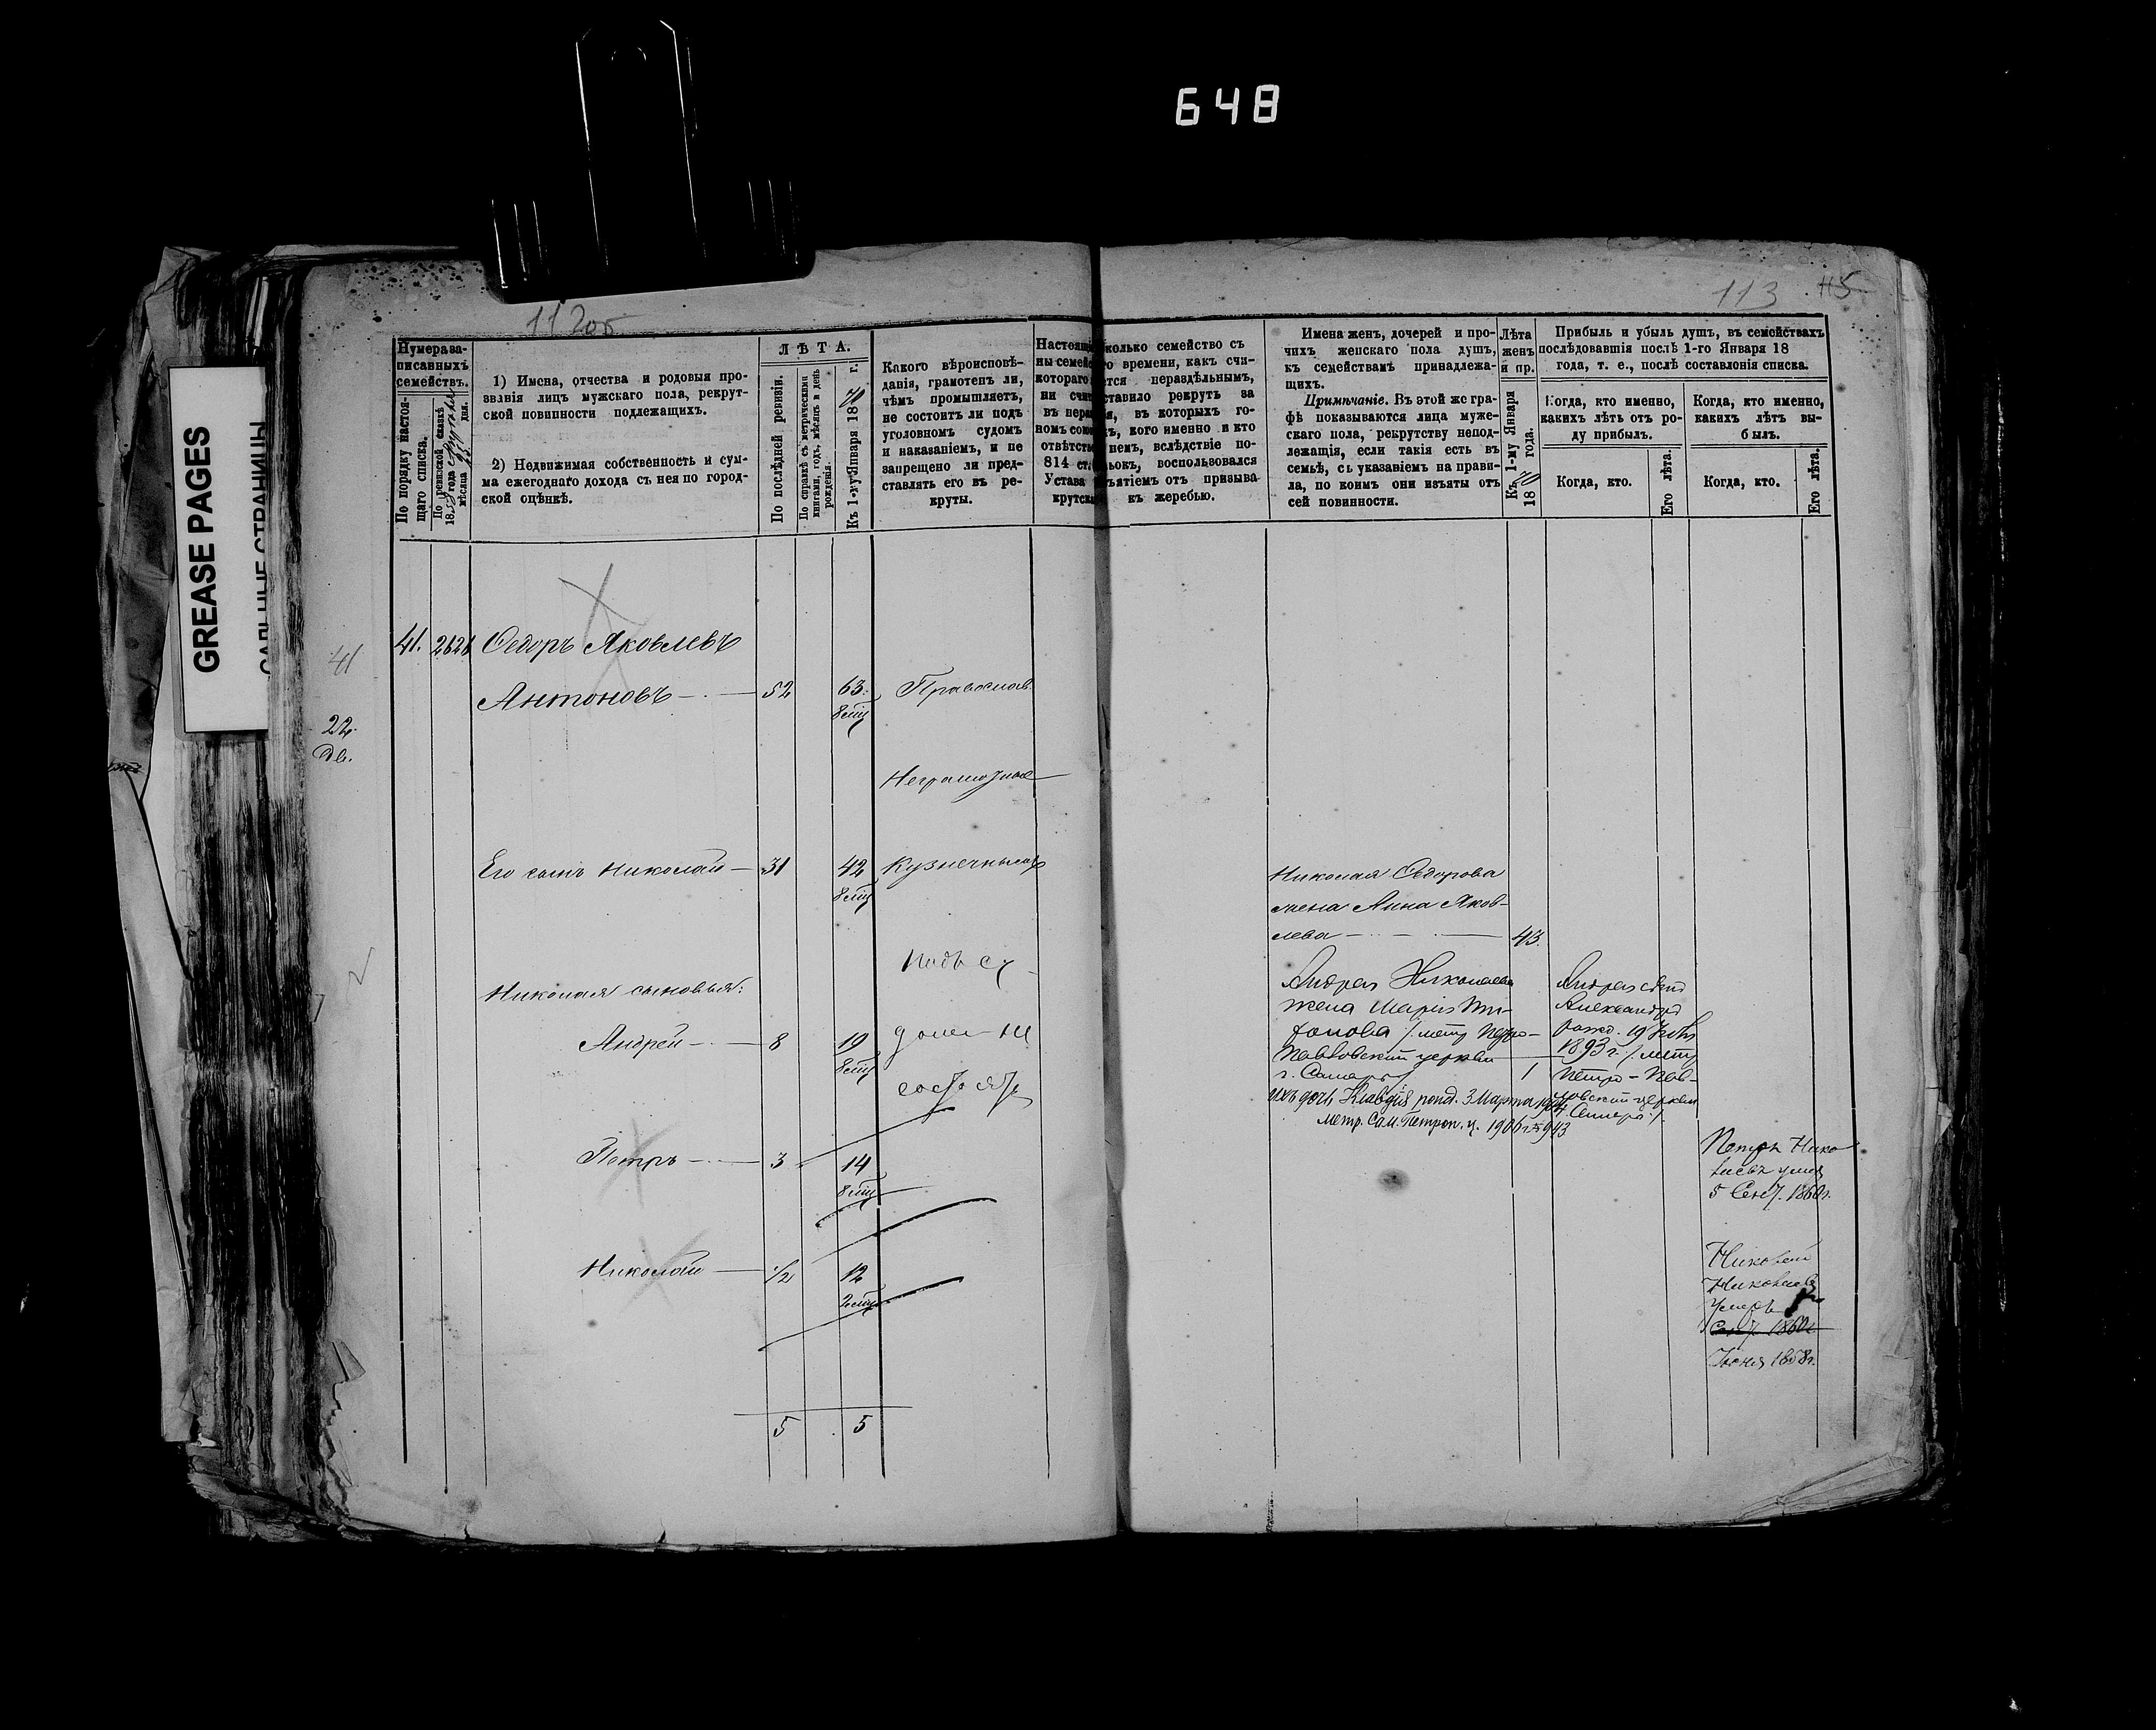 648
GREASE PAGES
САЛЬНЫЕ СТРАНИЦЫ
112об
113
115
Нумера за-
писанныхъ
семействъ.
По порядку настоя-
щаго списка.
По ревизской сказкѣ
18 года
мѣсяца дня.
1) Имена, отчества и родовыя про-
званія лицъ мужскаго пола, рекрут-
ской повинности подлежащихъ.
2) Недвижимая собственность и сум-
ма ежегоднаго дохода съ нея по город-
ской оцѣнкѣ.
ЛѢТА.
По послѣдней ревизіи.
По справкѣ съ метрическими
книгами, годъ, мѣсяцъ и день
рожденія.
Къ 1-му Января 1870 г.
Какого вѣроисповѣ-
данія, грамотенъ ли,
чѣмъ промышляетъ,
не состоитъ ли подъ
уголовномъ судомъ
и наказаніемъ, и не
запрещено ли пред-
ставлять его въ ре-
круты.
Настоящ
ны семей
котораго
ни счит
въ нера
номъ сою
отвѣтств
814 ст.
Устава
крутска
колько семейство съ
го времени, какъ счи-
ется нераздѣльнымъ,
ставило рекрутъ за
я, въ которыхъ го-
ъ, кого именно и кто
немъ, вслѣдствіе по-
ьокъ, воспользовался
ъятіемъ отъ призыва
къ жеребью.
Имена женъ, дочерей и про-
чихъ женскаго пола душъ,
къ семействамъ принадлежа-
щихъ.
Примѣчаніе. Въ этой же гра-
фѣ показываются лица муже-
скаго пола, рекрутству непод-
лежащія, если такія есть въ
семьѣ, съ указаніемъ на прави-
ла, по коимъ они изъяты отъ
сей повинности.
Лѣта
женъ
и пр.
Къ 1-му Января
1870 года.
Прибыль и убыль душъ, въ семействахъ
послѣдовавшія послѣ 1-го Января 18
года, т. е., послѣ составленія списка.
Когда, кто именно,
какихъ лѣтъ отъ ро-
ду прибылъ.
Когда, кто именно,
какихъ лѣтъ вы-
былъ.
Когда, кто.
Его лѣта.
Когда, кто.
Его лѣта.
41
22.
Дв.
41. 2626 Ѳедоръ Яковлевъ
Антоновъ — 52 63. Православ.
8 мц
Неграмотные
Его сынъ Николай — 31 42 Кузнечны
8 мц
Николая Ѳедорова
жена Анна Яков-
лева — 43.
Подъ су
Николая сыновья:
Андрей — 8 19
8 мц
домъ не
состоятъ
Андрея Николаева
жена Марія
фонова /: метр Петро-
Павловской церкви
г. Самары :/ 1
Ихъ дочь Клавдія, рожд. 3 Марта
метр. Сам. Петроп. ц. 1906 г. № 943
Андрея сынъ
Александръ
рожд. 19
1893 г. /: метр
Петро-Пав-
ловской церкви
г. Самары :/
Петръ — 3 14
8 мц
Петръ Нико
лаевъ умеръ
5 Сент. 1860 г.
Николай — 1/2 12
2 мц
Николай
Николаевъ
умеръ
Сент. 1860 г
Іюня 1858 г.
5 5